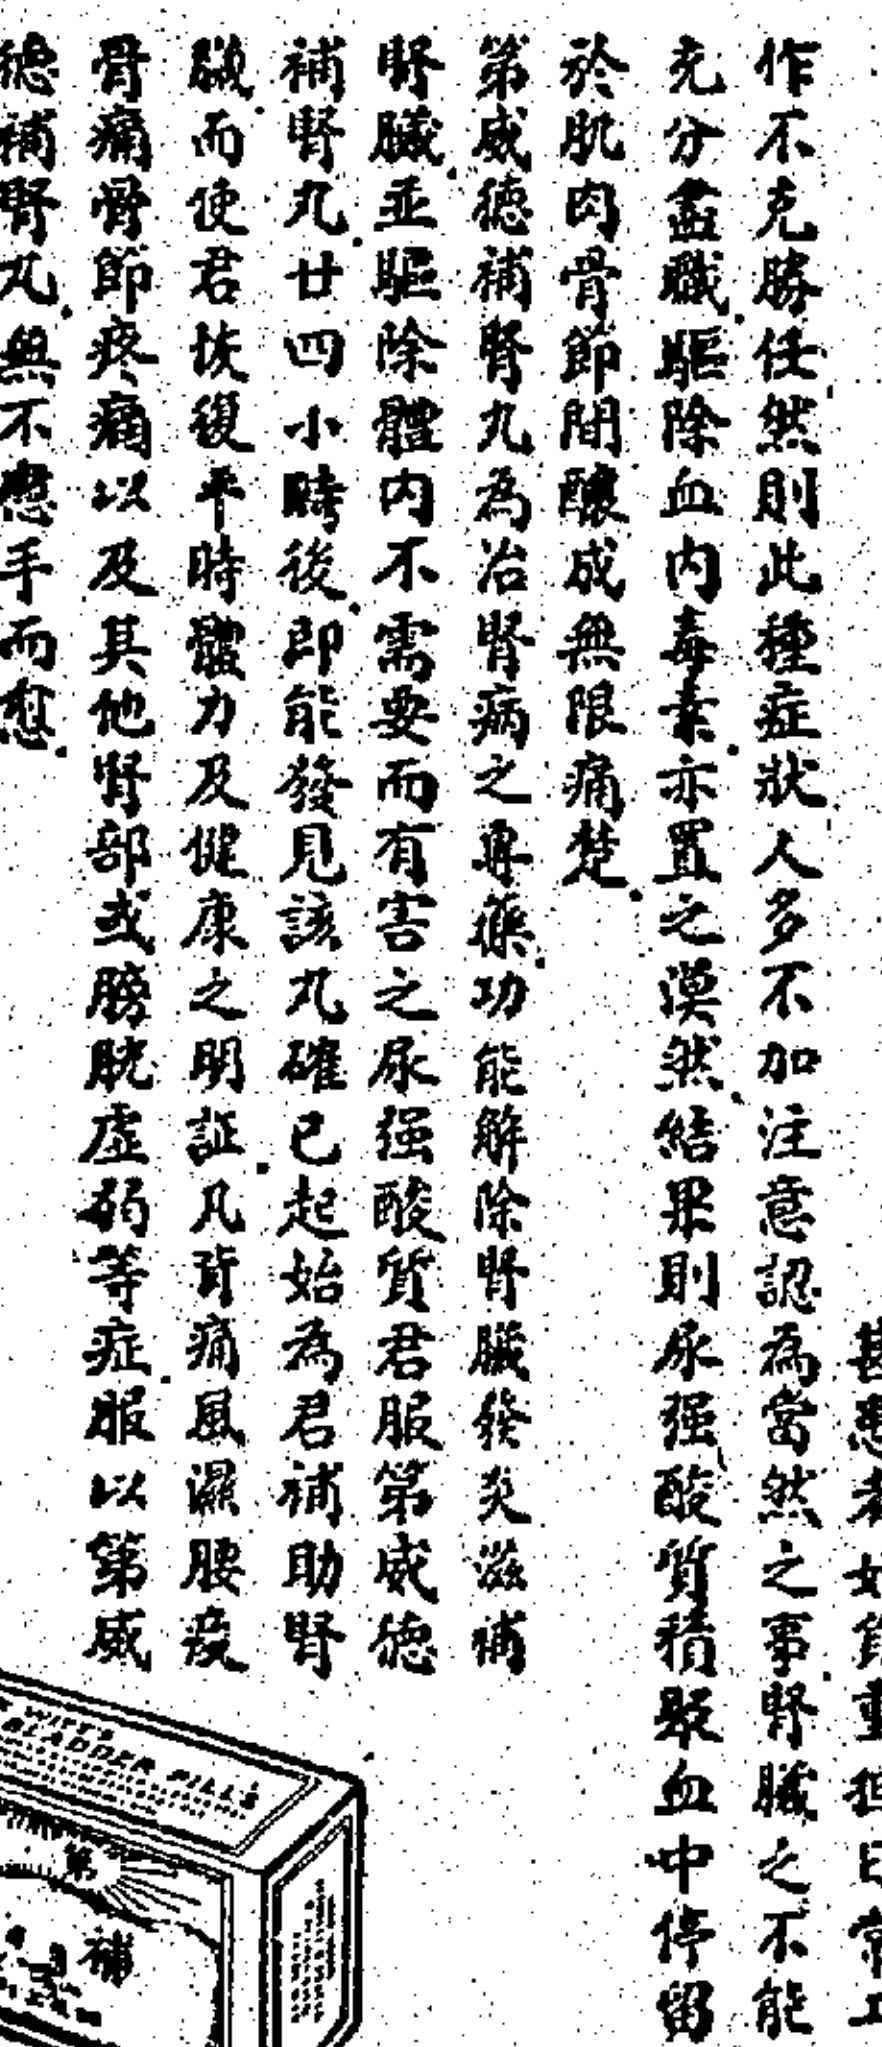 甚患者如負重担日常工
作不克勝任然則此種症狀人多不加注意認為當然之事腎臟之不能
充分盡職驅除血內毒素亦置之漠然結果則尿强酸質積聚血中停留
於肌肉骨節間釀成無限痛楚
第威德補腎丸為治腎病之專藥功能解除腎臟發炎滋補
腎臟並驅除體内不需要而有害之尿强酸質君服第威德
補腎丸廿四小時後即能發見該丸確已起始為君補助腎
臟而使君恢復平時體力及健康之明証凡背痛風濕腰痠
骨痛骨節疼痛以及其他腎部或膀胱虛弱等症服以第威
德補腎丸無不應手而愈
WITT'S
BLADDER PILLS
第
補